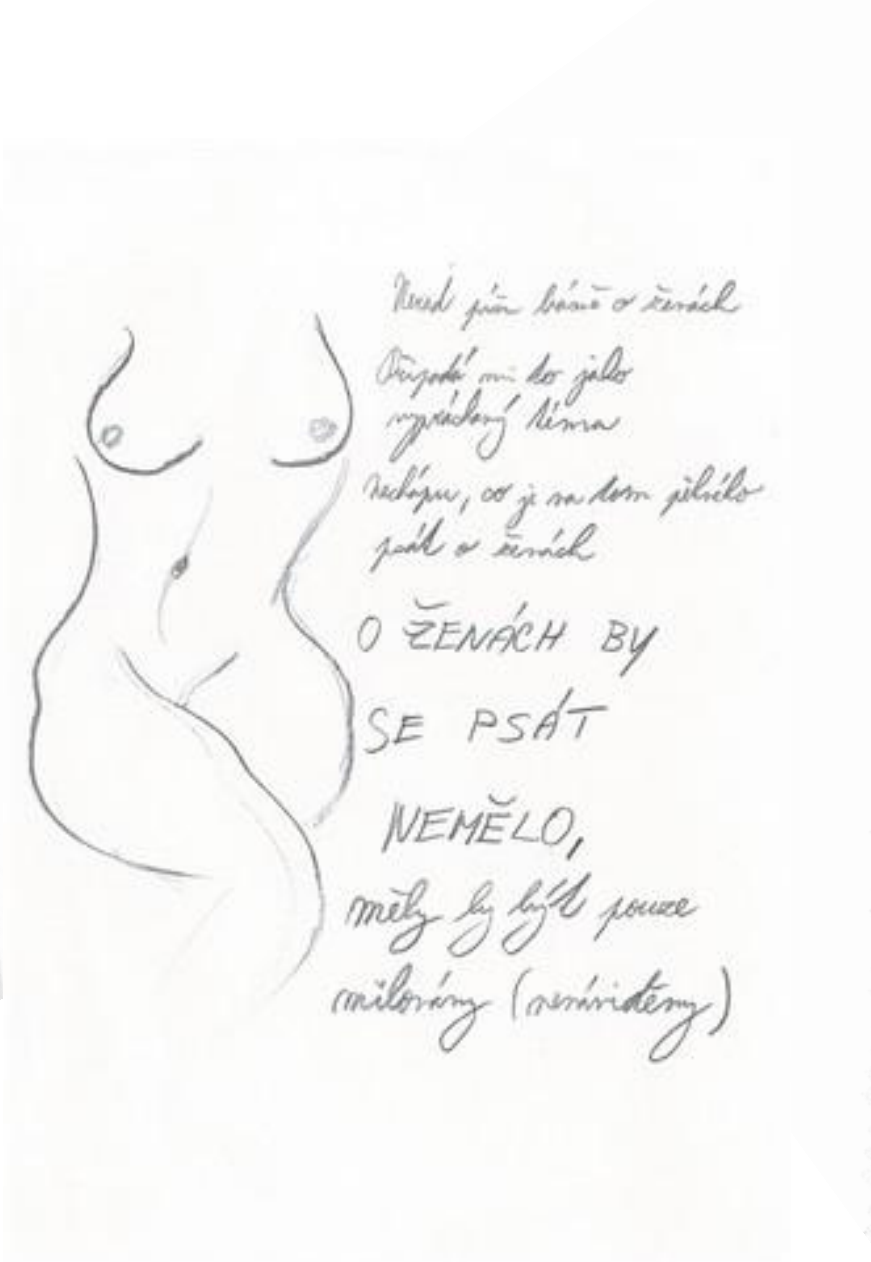 Nerad píši básně o ženách
Připadá mi to jako
vyprázdněný téma
Nechápu, co je na tom pěkného
psát o ženách
O ŽENÁCH BY
SE PSÁT
NEMĚLO,
měly by být pouze
milovány (nenáviděny)